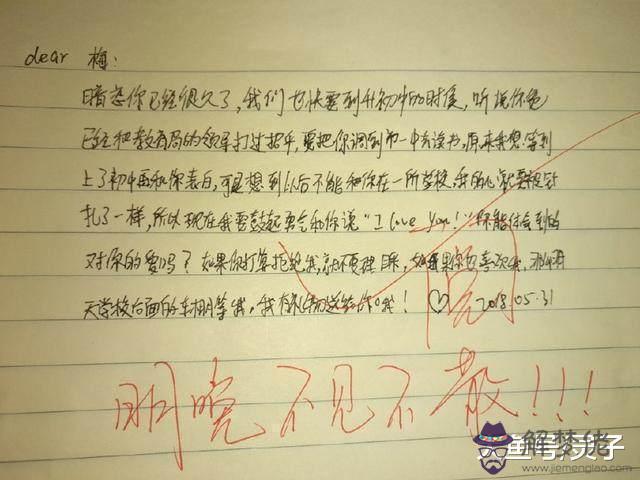 dear 梅:
暗恋你已经很久了,我们也快要到升初中的时候,听说你爸
已经和教育局的领导打过招乎,要把你调到市一中去读书,原来我想等到
上了初中再和你表白,可是想到以后不能和你在一所学校,我的心就要被针
扎了一样,所以现在我要鼓起勇气和你说“I love You!”你能体会到我
对你的爱吗?如果你打算拒绝我,就不要理 如果你也喜欢我,
天学校后面的车棚等我,我有礼物送给你哦!♡ 2018.05.31
明晚不见不散!!!
解梦佬
www.jiemenglao.com